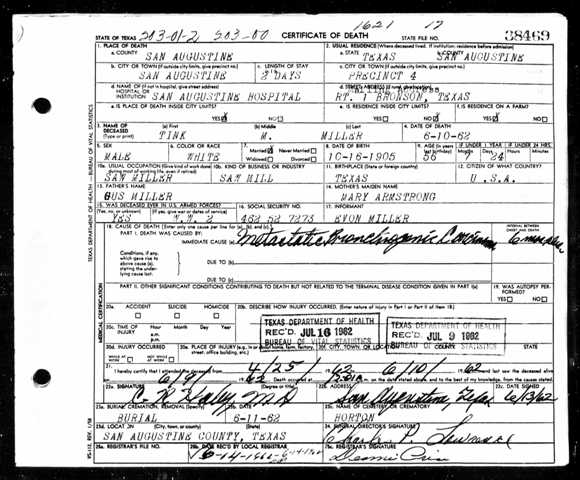 1621 17
203-01-2 203-00
STATE OF TEXAS CERTIFICATE OF DEATH STATE FILE NO. 38469
1. PLACE OF DEATH 2. USUAL RESIDENCE (Where deceased lived. If institution: residence before admission)
a. COUNTY SAN AUGUSTINE a. STATE TEXAS b. COUNTY SAN AUGUSTINE
b. CITY OR TOWN (If outside city limits, give precinct no.) c. LENGTH OF STAY c. CITY OR TOWN (If outside city limits, give precinct no.)
SAN AUGUSTINE 2 DAYS PRECINCT 4
d. NAME OF (If not in hospital, give street address) HOSPITAL OR INSTITUTION SAN AUGUSTINE HOSPITAL RT. 1 BRONSON, TEXAS
e. IS PLACE OF DEATH INSIDE CITY LIMITS? e. IS RESIDENCE INSIDE CITY LIMITS? f. IS RESIDENCE ON A FARM?
YES NO YES NO YES NO
3. NAME OF DECEASED (a) First (b) Middle (c) Last 4. DATE OF DEATH
TINK M. MILLER 6-10-62
5. SEX 6. COLOR OR RACE 7. Married Never Married 8. DATE OF BIRTH 9. AGE IF UNDER 1 YEAR IF UNDER 24 HRS.
MALE WHITE Widowed Divorced 10-16-1905 56 24
10a. USUAL OCCUPATION (Give kind of work done 10b. KIND OF BUSINESS OR INDUSTRY 11. BIRTHPLACE (State or foreign country) 12. CITIZEN OF WHAT COUNTRY?
SAW MILLER SAW MILL TEXAS U.S.A.
13. FATHER'S NAME 14. MOTHER'S MAIDEN NAME
GUS MILLER MARY ARMSTRONG
15. WAS DECEASED EVER IN U.S. ARMED FORCES? 16. SOCIAL SECURITY NO. 17. INFORMANT
YES W.W. 2 462 52 7273 EVON MILLER
18. CAUSE OF DEATH [Enter only one cause per line for (a), (b), and (c).]
PART I. DEATH WAS CAUSED BY:
IMMEDIATE CAUSE (a) Metastatic Bronchogenic Carcinoma
Conditions, if any, which gave rise to above cause (a), stating the underlying cause last.
DUE TO (b)
DUE TO (c)
PART II. OTHER SIGNIFICANT CONDITIONS CONTRIBUTING TO DEATH BUT NOT RELATED TO THE TERMINAL DISEASE CONDITION GIVEN IN PART I(a) 19. WAS AUTOPSY PERFORMED?
YES NO
20a. ACCIDENT SUICIDE HOMICIDE 20b. DESCRIBE HOW INJURY OCCURRED. (Enter nature of injury in Part I or Part II of item 18.)
20c. TIME OF INJURY Hour Month Day Year
TEXAS DEPARTMENT OF HEALTH
REC'D JUL 16 1962
BUREAU OF VITAL STATISTICS
TEXAS DEPARTMENT OF HEALTH
REC'D JUL 9 1962
BUREAU OF VITAL STATISTICS
20d. INJURY OCCURRED 20e. PLACE OF INJURY 20f. CITY, TOWN, OR LOCATION COUNTY
21. I certify that I attended the deceased from 4/25/ 62 6/10/ 1962
6/9/ 62 Death occurred
22a. SIGNATURE 22b. ADDRESS 22c. DATE SIGNED
C. R. Haley M.D. San Augustine, Texas 6/13/62
23a. BURIAL, CREMATION, REMOVAL (Specify) 23b. DATE 23c. NAME OF CEMETERY OR CREMATORY
BURIAL 6-11-62 HORTON
23d. LOCATION (City, town, or county) (State) 24. FUNERAL DIRECTOR'S SIGNATURE
SAN AUGUSTINE COUNTY, TEXAS Charles P.
25a. REGISTRAR'S FILE NO. 25b. DATE REC'D BY LOCAL REGISTRAR 25c. REGISTRAR'S SIGNATURE
6-14-1962
TEXAS DEPARTMENT OF HEALTH - BUREAU OF VITAL STATISTICS
MEDICAL CERTIFICATION